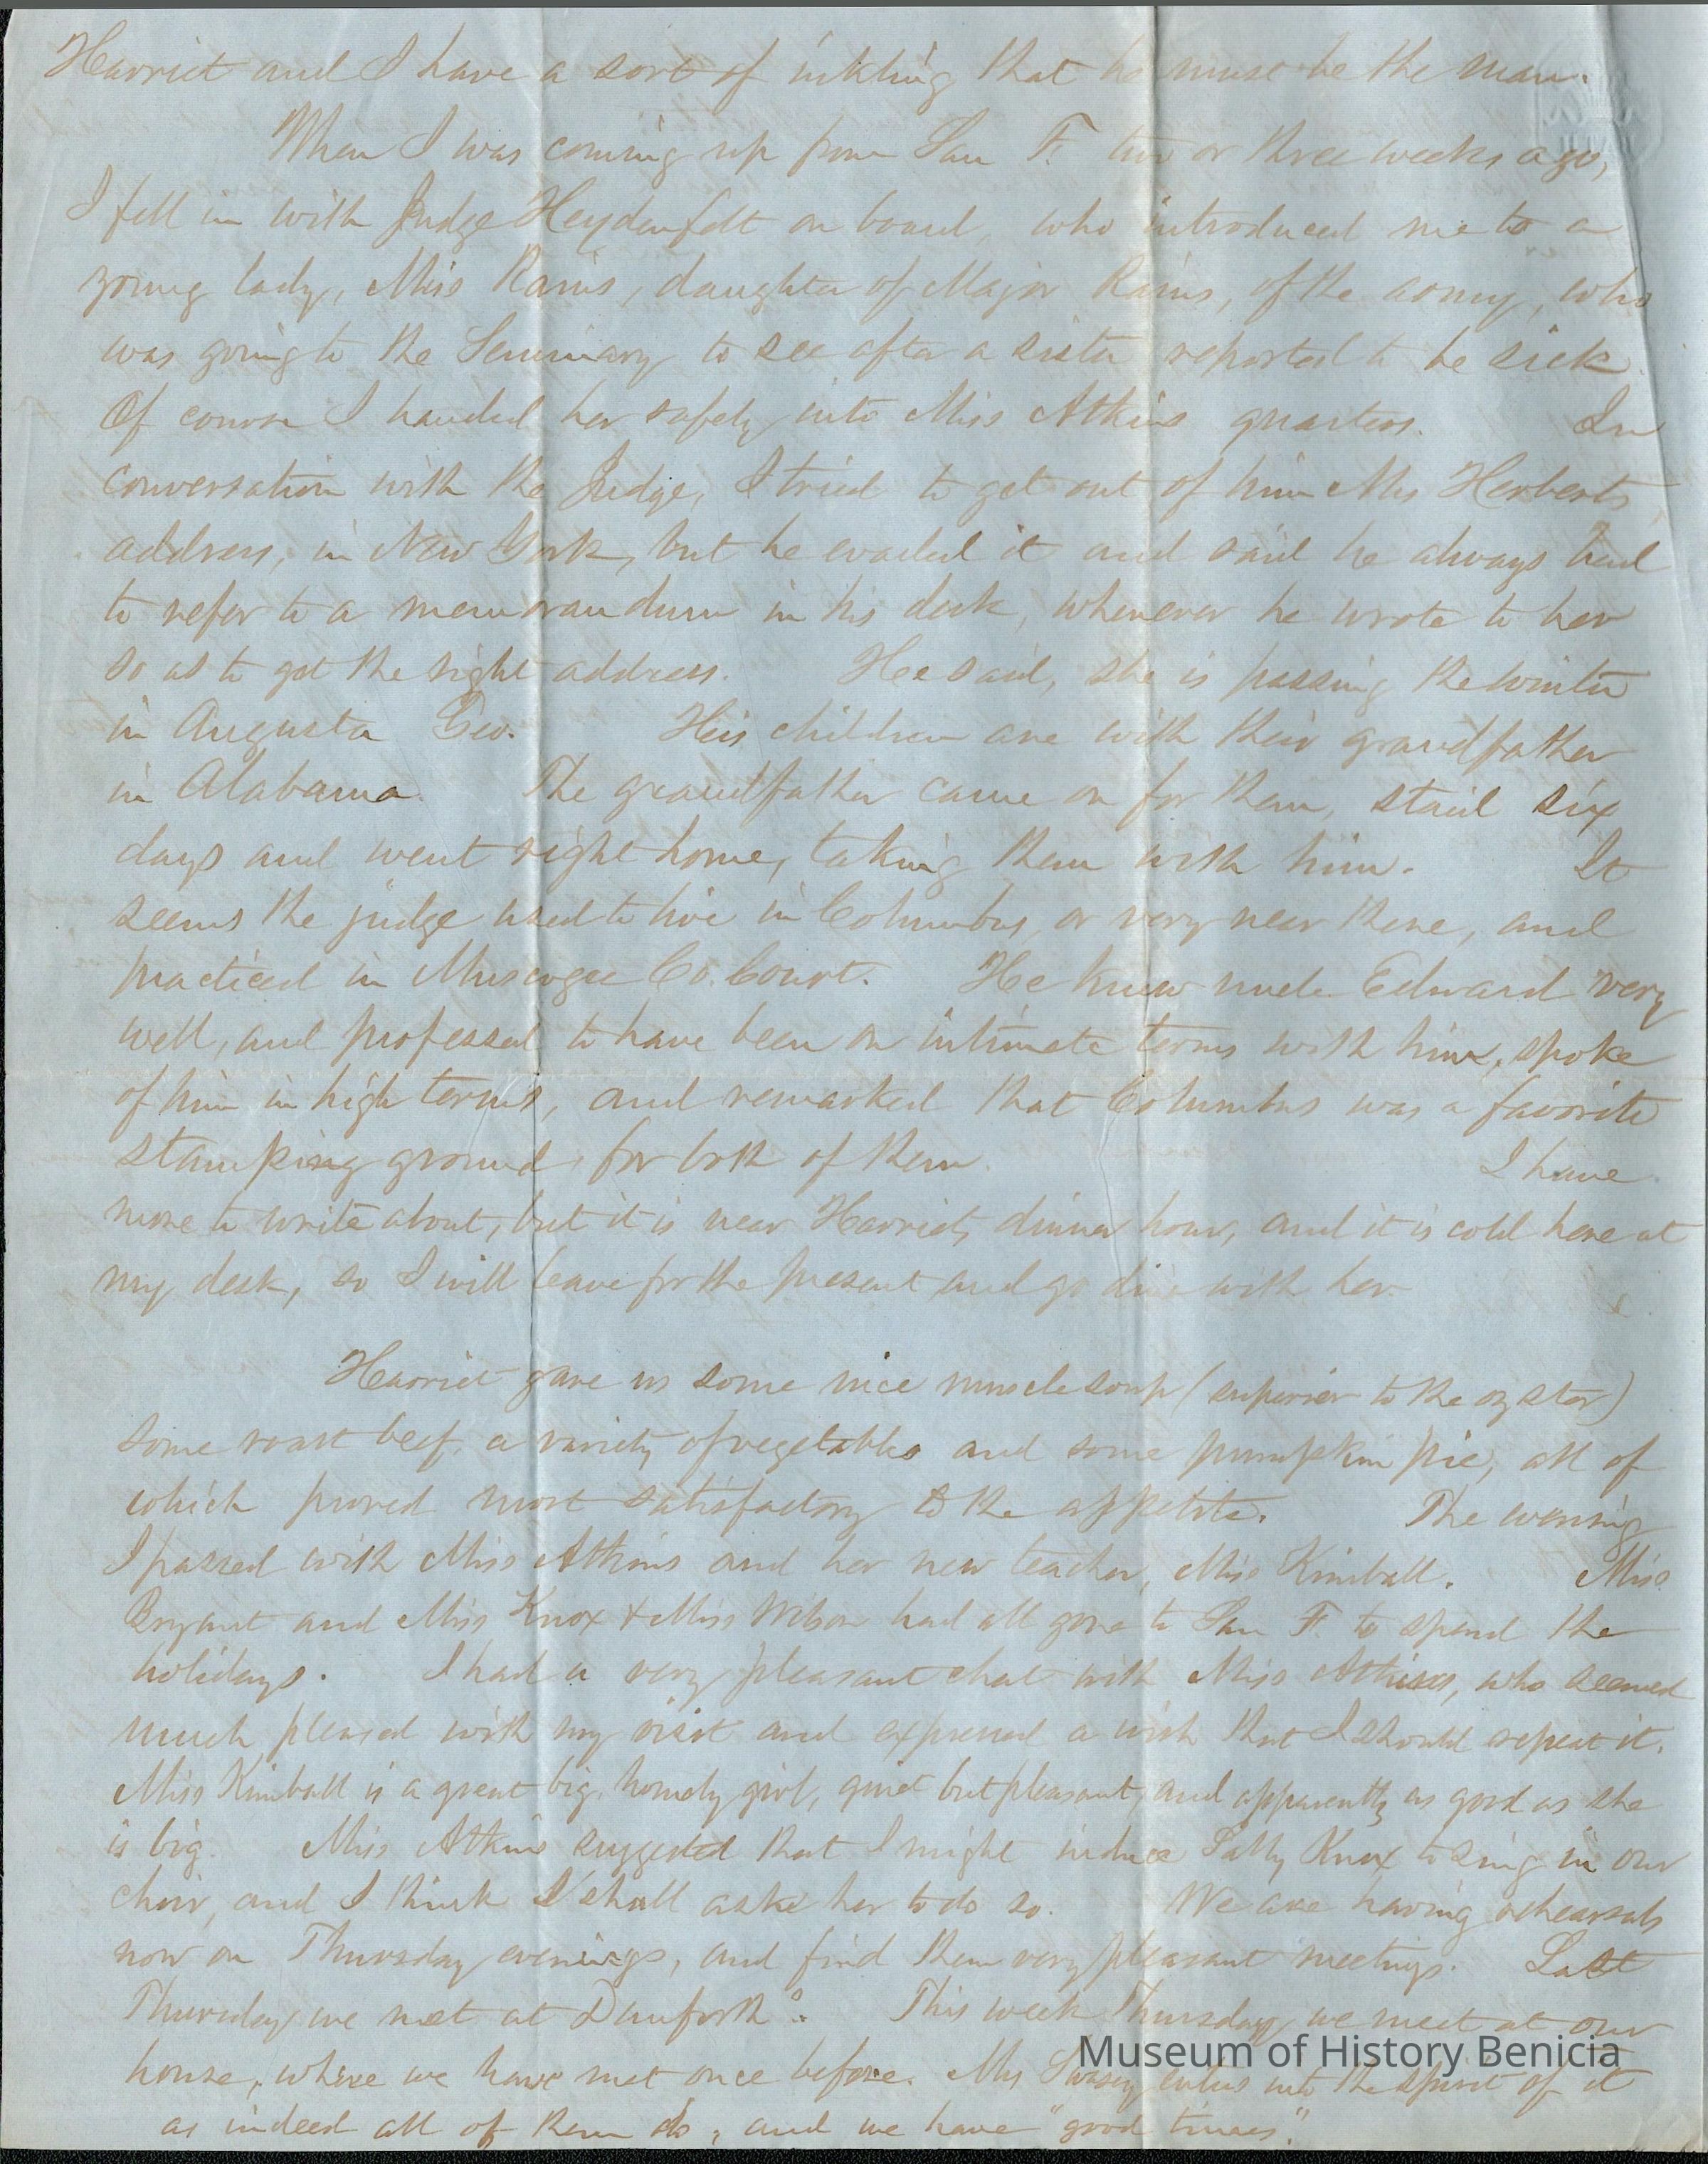 Harriet and I have a sort of inkling that he must be the man.
When I was coming up from San F. two or three weeks ago,
I fell in with Judge Heydenfelt on board, who introduced me to a
young lady, Miss Rains, daughter of Major Rains, of the army, who
was going to the Seminary to see after a sister reported to be sick.
Of course I handed her safely into Miss Atkins quarters. In
conversation with the Judge, I tried to get out of him Mrs Herberts
address, in New York, but he evaded it and said he always had
to refer to a memorandum in his desk, whenever he wrote to her
so as to get the right address. He said, she is passing the winter
in Augusta Geo. His children are with their grandfather
in Alabama. The grandfather came on for them, staid six
days and went right home, taking them with him. It
seems the judge used to live in Columbus, or very near there, and
practiced in Muscogee Co. Court. He knew uncle Edward very
well, and professed to have been on intimate terms with him, spoke
of him in high terms, and remarked that Columbus was a favorite
stamping ground, for both of them. I have
more to write about, but it is near Harriets dinner hour, and it is cold here at
my desk, so I will leave for the present and go dine with her.
Harriet gave us some nice muscle soup (superior to the oyster)
some roast beef, a variety of vegetables and some pumpkin pie, all of
which proved most satisfactory to the appetite. The evening
I passed with Miss Atkins and her new teacher, Miss Kimball. Miss
Bryant and Miss Knox & Miss Wilson had all gone to San F. to spend the
holidays. I had a very pleasant chat with Miss Atkins, who seemed
much pleased with my visit and expressed a wish that I should repeat it.
Miss Kimball is a great big, homely girl, quiet but pleasant, and apparently as good as she
is big. Miss Atkins suggested that I might induce Sally Knox to sing in our
choir, and I think I shall ask her to do so. We are having rehearsals
now on Thursday evenings, and find them very pleasant meetings. Last
Thursday we met at Danforths. This week Thursday we meet at our
house, where we have met once before. Mrs Swasey enters into the spirit of it
as indeed all of them do, and we have "good times."
Museum of History Benicia